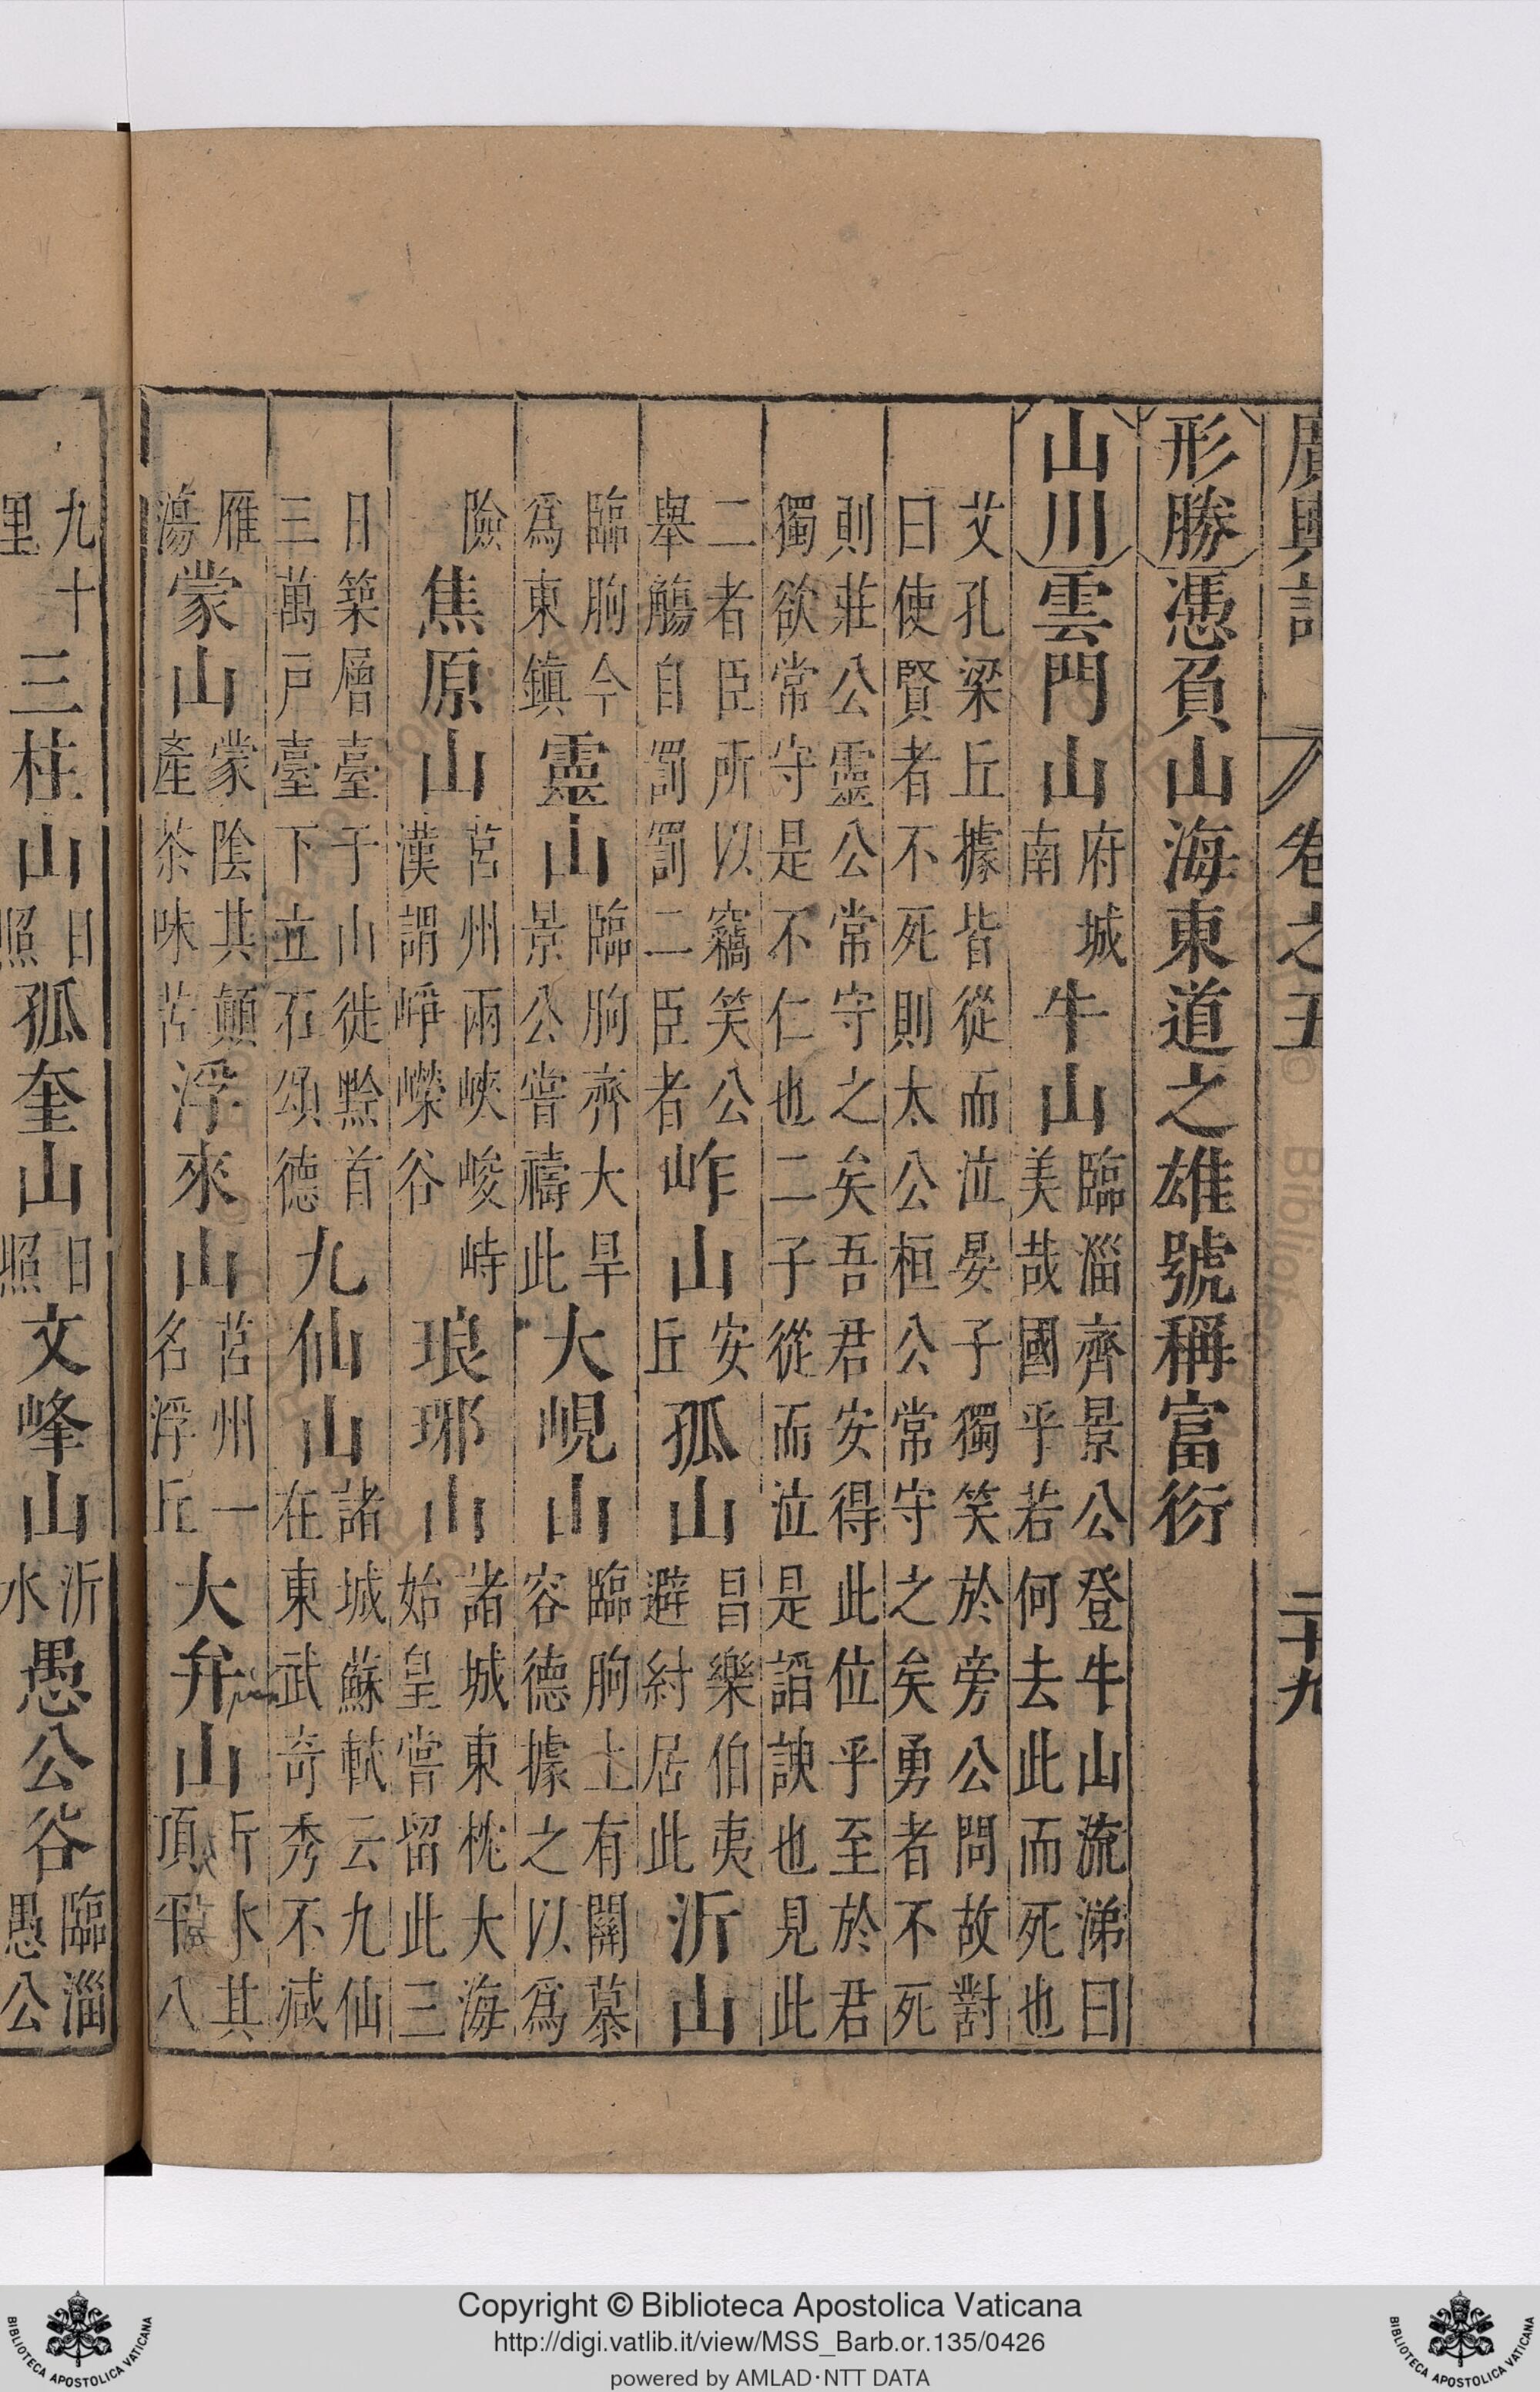 廣輿記 卷之五 二十九
形勝憑負山海東道之雄號稱富衍
山川雲門山府城南牛山臨淄齊景公登牛山流涕曰美哉國乎若何去此而死也
艾孔梁丘據皆從而泣晏子獨笑於旁公問故對曰使賢者不死則太公桓公常守之矣勇者不死
則莊公靈公常守之矣吾君安得此位乎至於君獨欲常守是不仁也二子從而泣是諂諛也見此
二者臣所以竊笑公舉觴自罰罰二臣者岞山安丘孤山昌樂伯夷避紂居此沂山
臨朐今為東鎮靈山臨朐齊大旱景公嘗禱此大峴山臨朐上有關慕容德據之以為
險焦原山莒州兩峽峻峙漢謂崢嶸谷琅琊山諸城東枕大海始皇嘗留此三
日築層臺于山徙黔首三萬戸臺下立石頌德九仙山諸城蘇軾云九仙在東武奇秀不減
雁蕩蒙山蒙陰其顛產茶味苦浮來山莒州一名浮丘大弁山沂水其頂平八
九十里三柱山日照孤奎山日照文峰山沂水愚公谷臨淄愚公
Copyright © Biblioteca Apostolica Vaticana
http://digi.vatlib.it/view/MSS_Barb.or.135/0426
powered by AMLAD·NTT DATA
BIBLIOTECA APOSTOLICA VATICANA
BIBLIOTECA APOSTOLICA VATICANA